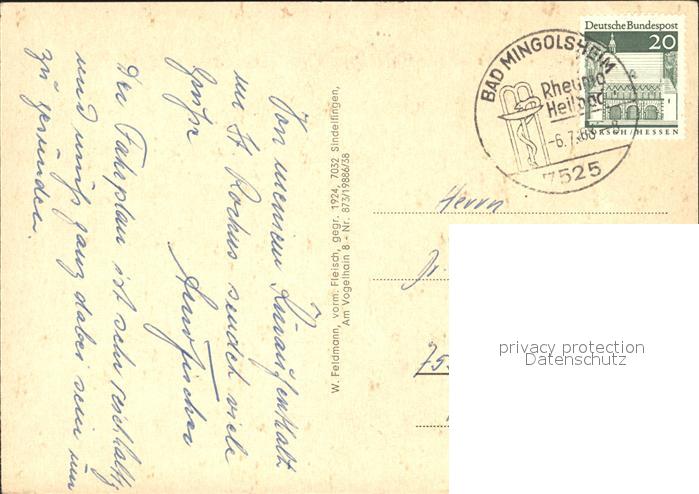 Von meinem Kuraufenthalt
im St. Rochus sendet viele
Grüße
Der Fahrplan ist sehr reichhaltig
und muß ganz dabei sein um
zu gesunden.
W. Feldmann, vorm. Fleisch, gegr. 1924, 7032 Sindelfingen,
Am Vogelhain 8 - Nr. 873/19886/38
BAD MINGOLSHEIM
Rheuma
Heilbad
-6.7.68
7525
Deutsche Bundespost
20
LORSCH/HESSEN
Herrn
Dr.
75
privacy protection
Datenschutz